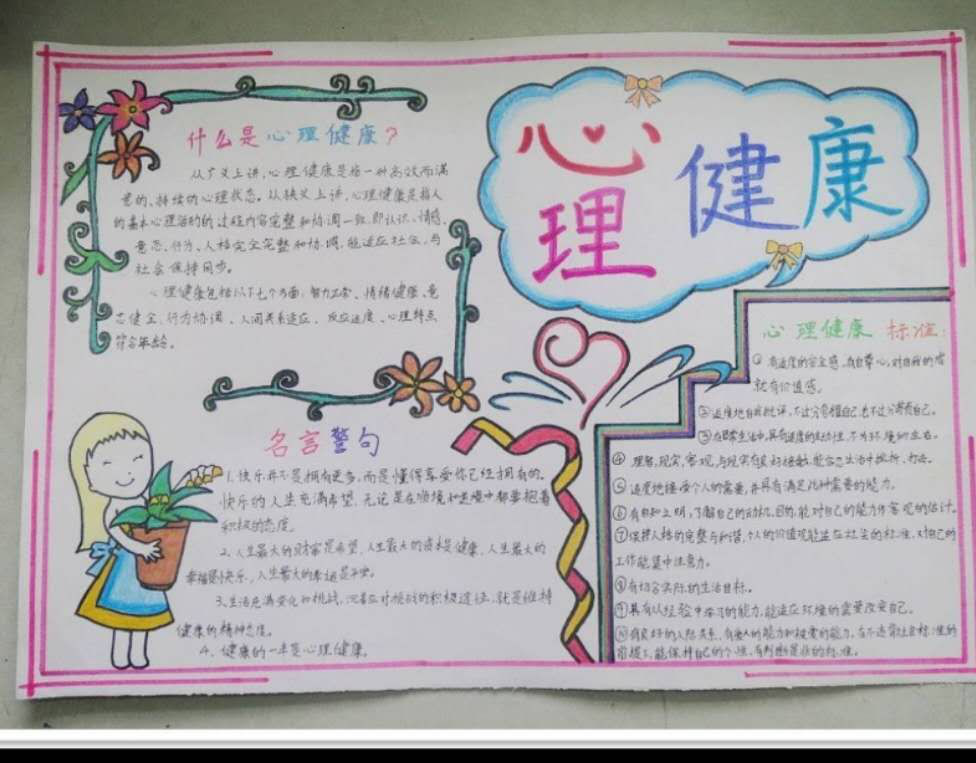 心理健康
什么是心理健康?
从广义上讲,心理健康是指一种高效而满
意的、持续的心理状态。从狭义上讲,心理健康是指人
的基本心理活动的过程内容完整和协调一致,即认识、情感、
意志、行为、人格完全完整和协调,能适应社会,与
社会保持同步。
心理健康包括以下七个方面:智力正常、情绪健康、意
志健全、行为协调、人间关系适应、反应适度、心理特点
符合年龄。
名言警句
1.快乐并不是拥有更多,而是懂得享受你已经拥有的。
快乐的人生充满希望,无论是在顺境和逆境中都要抱着
积极的态度。
2、人生最大的财富是希望,人生最大的资本是健康,人生最大的
幸福是快乐,人生最大的幸福是平安。
3、生活充满变化和挑战,沉着应对挑战的积极途径,就是维持
健康的精神态度。
4、健康的一半是心理健康。
心理健康标准:
①有适度的安全感,有自尊心,对自我的成
就有价值感。
②适度地自我批评,不过分夸耀自己,也不过分苛责自己。
③在日常生活中,具有适度的主动性,不为环境所左右。
④理智,现实,客观,与现实有良好接触,能容忍生活中挫折、打击。
⑤适度地接受个人的需要,并具有满足此种需要的能力。
⑥有自知之明,了解自己的动机、目的,能对自己的能力作客观的估计。
⑦保持人格的完整与和谐,个人的价值观能适应社会的标准,对自己的
工作能集中注意力。
⑧有切合实际的生活目标。
⑨具有从经验中学习的能力,能适应环境的需要改变自己。
⑩有良好的人际关系,有爱人的能力和被爱的能力。在不违背社会标准的
前提下,能保持自己的个性,有判断是非的标准。